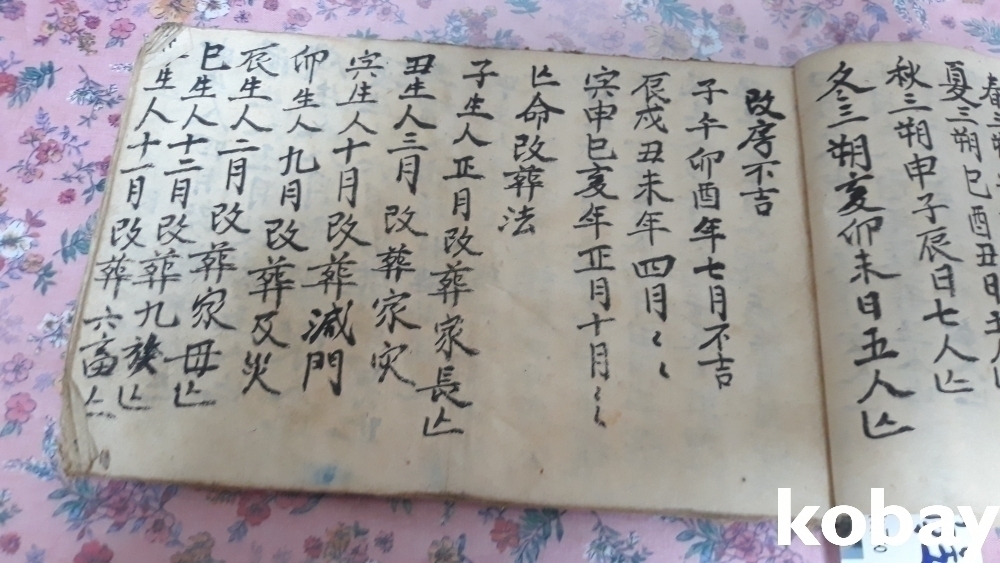 夏三朔巳酉丑日
秋三朔申子辰日七人亡
冬三朔亥卯未日五人亡
改序不吉
子午卯酉年七月不吉
辰戌丑未年四月〻〻
寅申巳亥年正月十月〻〻
亡命改葬法
子生人正月改葬家長亡
丑生人三月改葬家灾
寅生人十月改葬滅門
卯生人九月改葬及火
辰生人二月改葬家母亡
巳生人十二月改葬九族亡
生人十一月改葬六畜亡
kobay